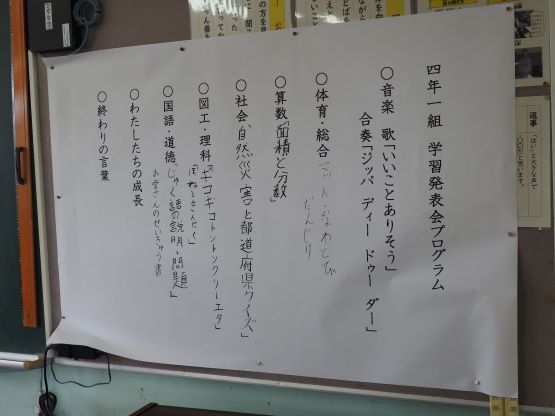 四年一組 学習発表会プログラム
○音楽 歌「いいことありそう」
合奏「ジッパ ディー ドゥー ダー」
○体育・総合 マット・なわとび
だんじり
○算数「面積と分数」
○社会「自然災害と都道府県クイズ」
○図工・理科「ギコギコトントンクリーエタ」
「ほねときんにく」
○国語・道徳「じゅく語の説明・問題」
お母さんのせいきゅう書
○わたしたちの成長
○終わりの言葉
返事
「はい」と大きな声で